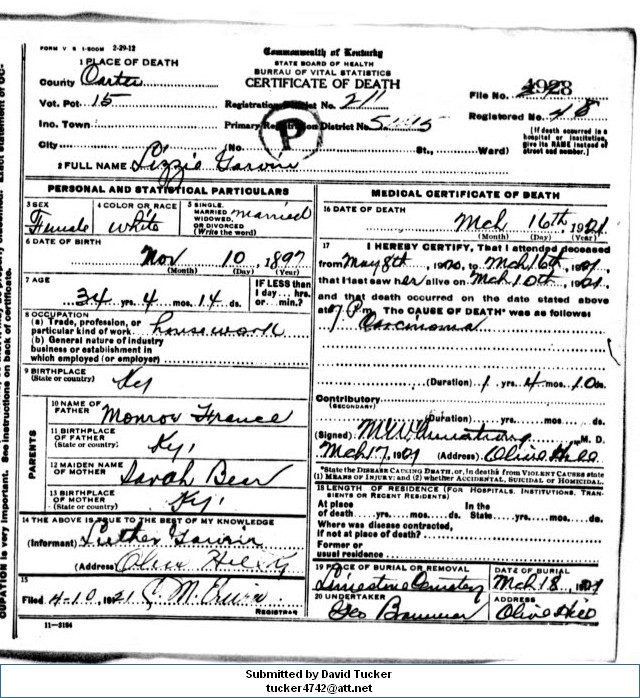 FORM V S 1-500M 2-29-12
Commonwealth of Kentucky
STATE BOARD OF HEALTH
BUREAU OF VITAL STATISTICS
CERTIFICATE OF DEATH
1 PLACE OF DEATH
County Carter
Vot. Pct. 15
Inc. Town
City (No. St., Ward)
Registration District No. 211
Primary Registration District No.
P
File No. 4928
Registered No. 48
[If death occurred in a hospital or institution, give its NAME instead of street and number.]
2 FULL NAME Lizzie
PERSONAL AND STATISTICAL PARTICULARS
3 SEX Female
4 COLOR OR RACE White
5 SINGLE, MARRIED, WIDOWED, OR DIVORCED (Write the word) married
6 DATE OF BIRTH
Nov 10, 1897
(Month) (Day) (Year)
7 AGE
34 yrs. 4 mos. 14 ds.
IF LESS than 1 day... hrs. or... min.?
8 OCCUPATION
(a) Trade, profession, or particular kind of work housework
(b) General nature of industry business or establishment in which employed (or employer)
9 BIRTHPLACE
(State or country) Ky
PARENTS
10 NAME OF FATHER Monroe
11 BIRTHPLACE OF FATHER (State or country) Ky.
12 MAIDEN NAME OF MOTHER Sarah Bear
13 BIRTHPLACE OF MOTHER (State or country) Ky.
14 THE ABOVE IS TRUE TO THE BEST OF MY KNOWLEDGE
(Informant) Luther
(Address) Olive Hill Ky
15
Filed 4-10, 1921
REGISTRAR
11-3184
MEDICAL CERTIFICATE OF DEATH
16 DATE OF DEATH
Mch 16th, 1921
(Month) (Day) (Year)
17 I HEREBY CERTIFY, That I attended deceased
from May 8th, 1920, to Mch 16th, 1921,
that I last saw her alive on Mch 10th, 1921,
and that death occurred on the date stated above
at 7 P m. The CAUSE OF DEATH* was as follows:
Carcinoma
(Duration) 1 yrs. 4 mos. 10 ds.
Contributory
(SECONDARY)
(Duration) yrs. mos. ds.
(Signed) Armstrong, M. D.
Mch 17, 1921 (Address) Olive Hill
*State the DISEASE CAUSING DEATH, or, in deaths from VIOLENT CAUSES state (1) MEANS OF INJURY; and (2) whether ACCIDENTAL, SUICIDAL or HOMICIDAL.
18 LENGTH OF RESIDENCE (FOR HOSPITALS, INSTITUTIONS, TRANSIENTS OR RECENT RESIDENTS)
At place of death... yrs. ... mos. ... ds. In the State... yrs. ... mos. ... ds.
Where was disease contracted, if not at place of death?
Former or usual residence
19 PLACE OF BURIAL OR REMOVAL
Limestone Cemetery
DATE OF BURIAL
Mch 18, 1921
20 UNDERTAKER
Geo
ADDRESS
Olive Hill
Submitted by David Tucker
tucker4742@att.net